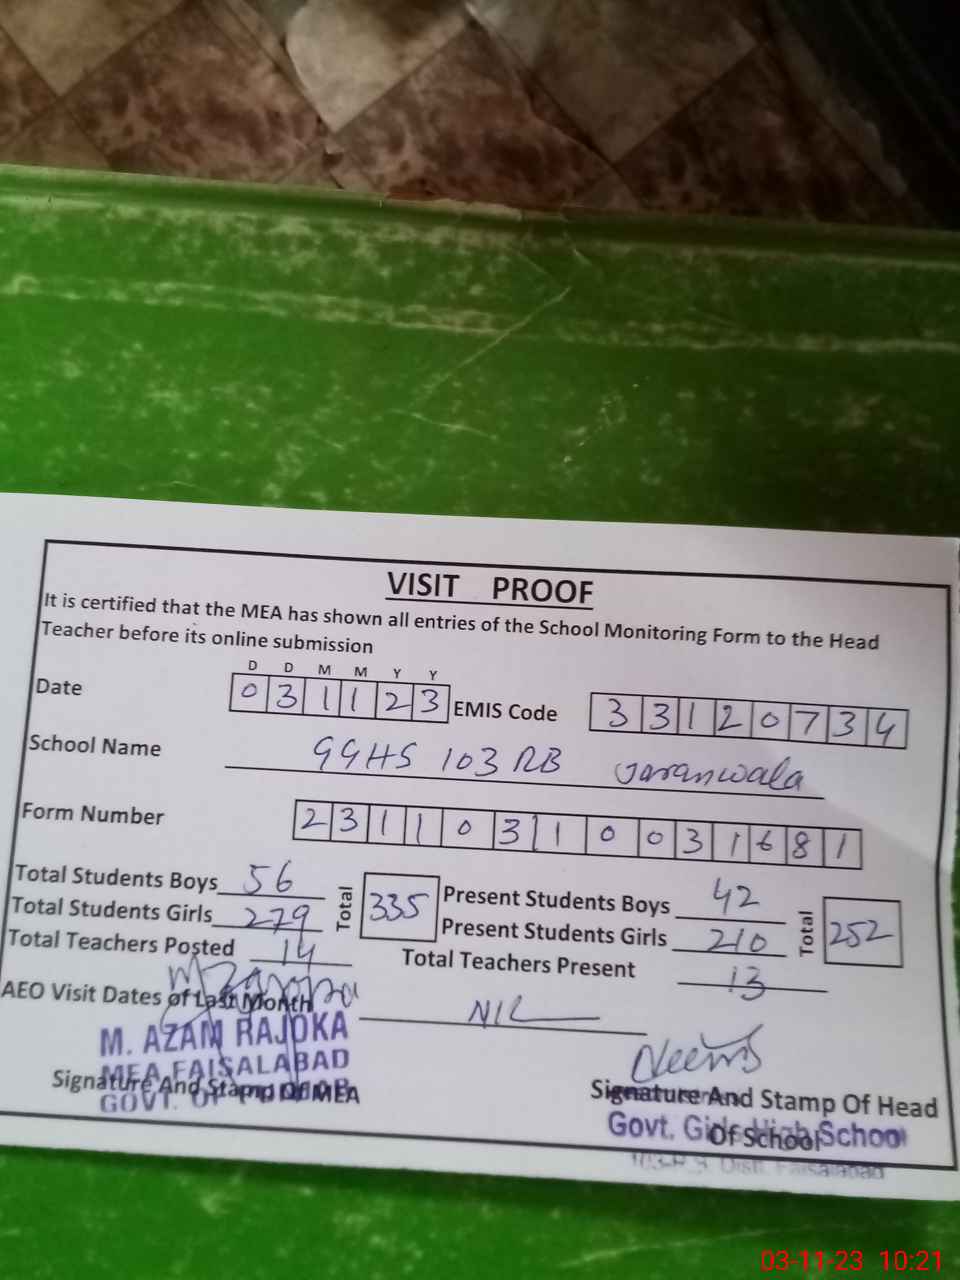 VISIT PROOF
It is certified that the MEA has shown all entries of the School Monitoring Form to the Head
Teacher before its online submission
D D M M Y Y
Date 031123 EMIS Code 33120734
School Name GGHS 103 RB Jaranwala
Form Number 23110310031681
Total Students Boys 56 Total 335 Present Students Boys 42 Total 252
Total Students Girls 279 Present Students Girls 210
Total Teachers Posted 14 Total Teachers Present 13
AEO Visit Dates of Last Month NIL
M. AZAM RAJOKA
MEA FAISALABAD
Signature And Stamp Of MEA Signature And Stamp Of Head
GOVT. OF
Govt. Girls High School
Of School
103-R.B. Distt. Faisalabad
03-11-23 10:21